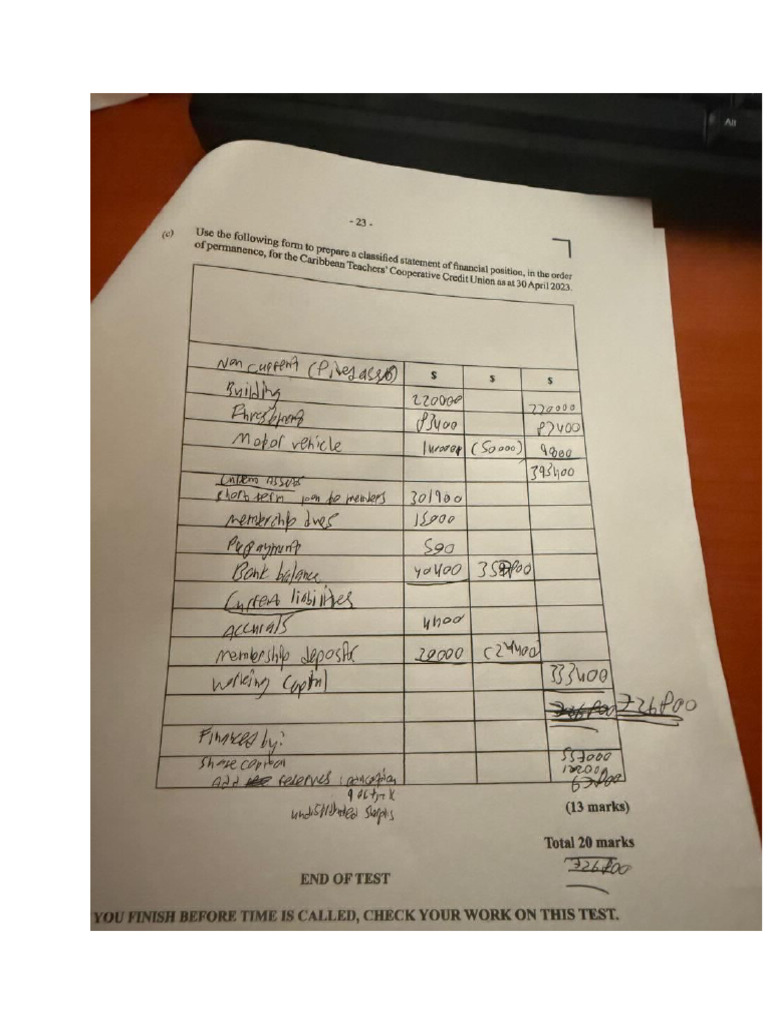 All
- 23 -
(c) Use the following form to prepare a classified statement of financial position, in the order
of permanence, for the Caribbean Teachers' Cooperative Credit Union as at 30 April 2023.
Non current (Fixed assets) $ $ $
Building 220000 220000
83400 83400
Motor vehicle (50000)
393400
Current Assets
short term loan to members 301900
membership dues 15000
Prepayment 500
Bank balance 40400
Current liabilities
Accruals 4400
membership deposits 20000 (24400)
Working Capital 333400
726800
Financed by:
Share capital 557000
Add reserves
undistributed
(13 marks)
Total 20 marks
726800
END OF TEST
YOU FINISH BEFORE TIME IS CALLED, CHECK YOUR WORK ON THIS TEST.